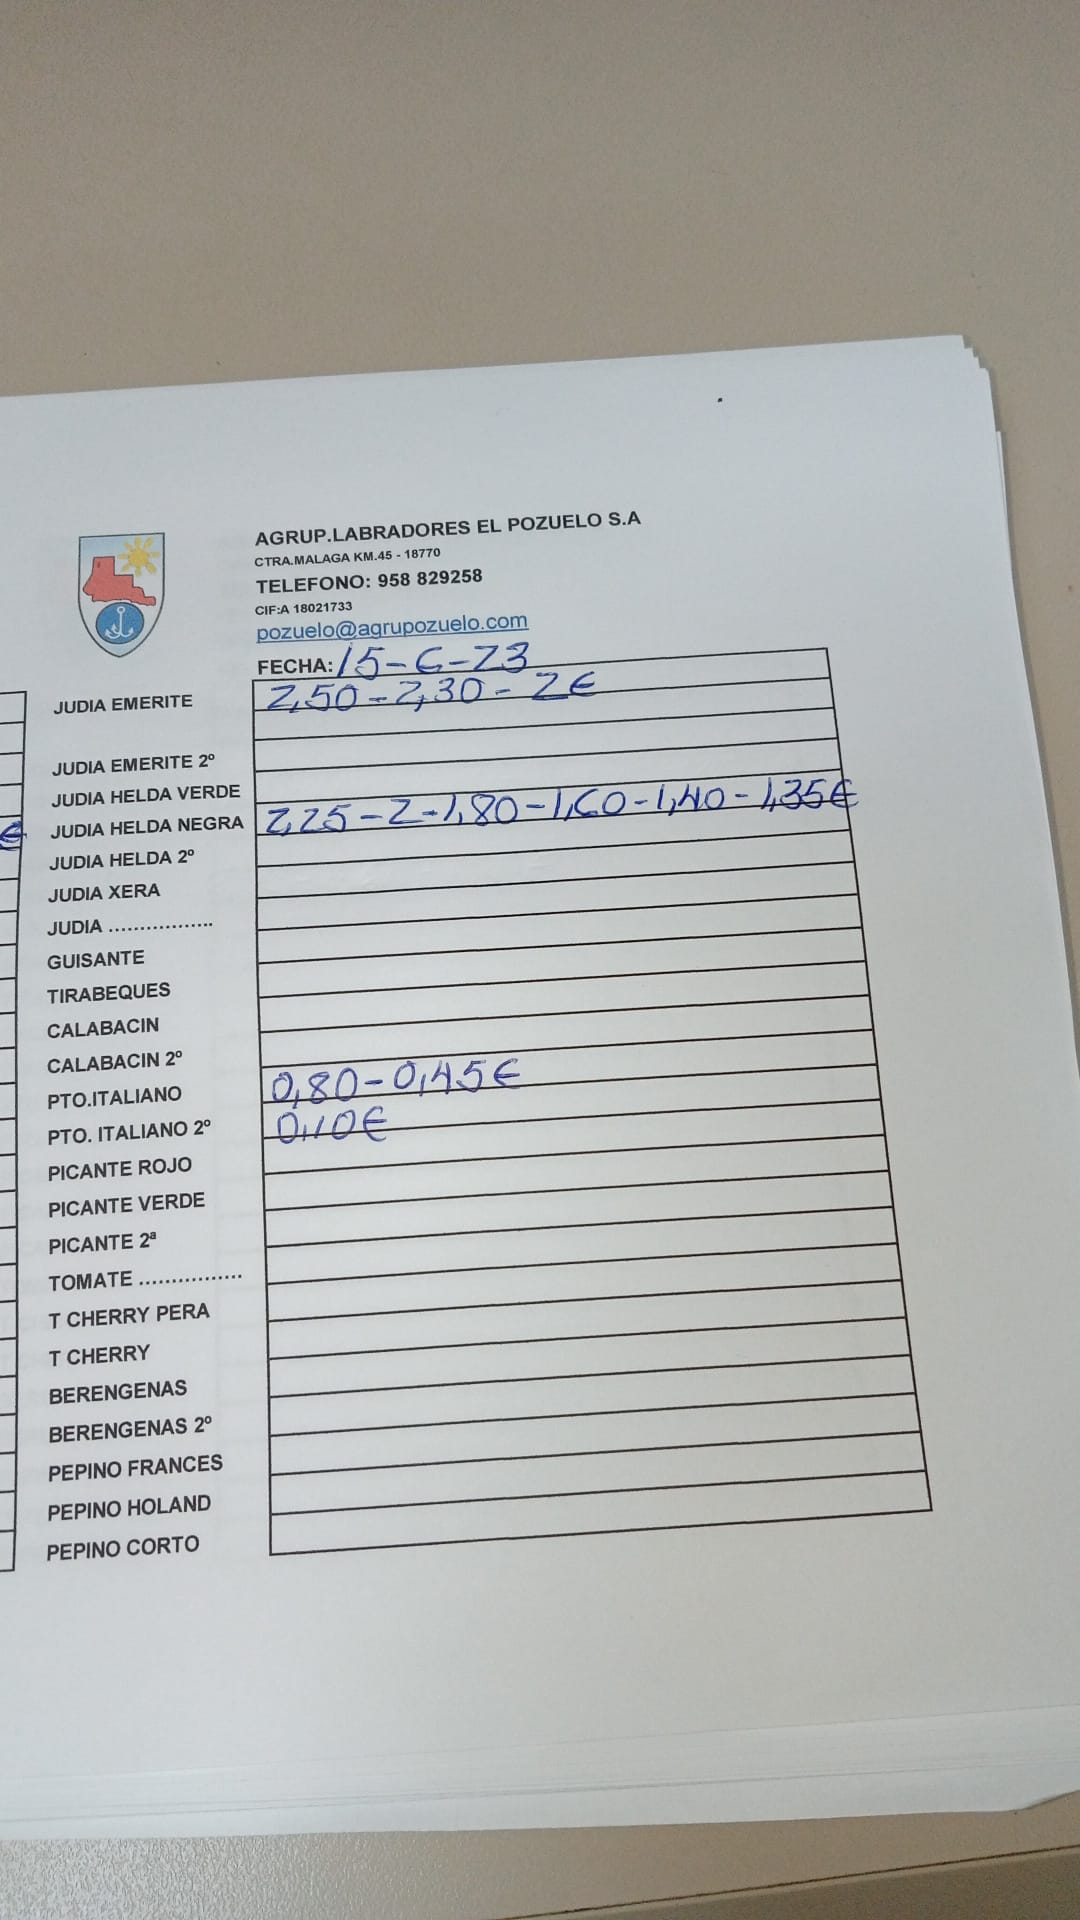 AGRUP.LABRADORES EL POZUELO S.A
CTRA.MALAGA KM.45 - 18770
TELEFONO: 958 829258
CIF:A 18021733
pozuelo@agrupozuelo.com
FECHA: 15-6-23
JUDIA EMERITE 2,50-2,30-2€
JUDIA EMERITE 2º
JUDIA HELDA VERDE
€ JUDIA HELDA NEGRA 2,25-2-1,80-1,60-1,40-1,35€
JUDIA HELDA 2º
JUDIA XERA
JUDIA .................
GUISANTE
TIRABEQUES
CALABACIN
CALABACIN 2º
PTO.ITALIANO 0,80-0,45€
PTO. ITALIANO 2º 0,10€
PICANTE ROJO
PICANTE VERDE
PICANTE 2ª
TOMATE ................
T CHERRY PERA
T CHERRY
BERENGENAS
BERENGENAS 2º
PEPINO FRANCES
PEPINO HOLAND
PEPINO CORTO